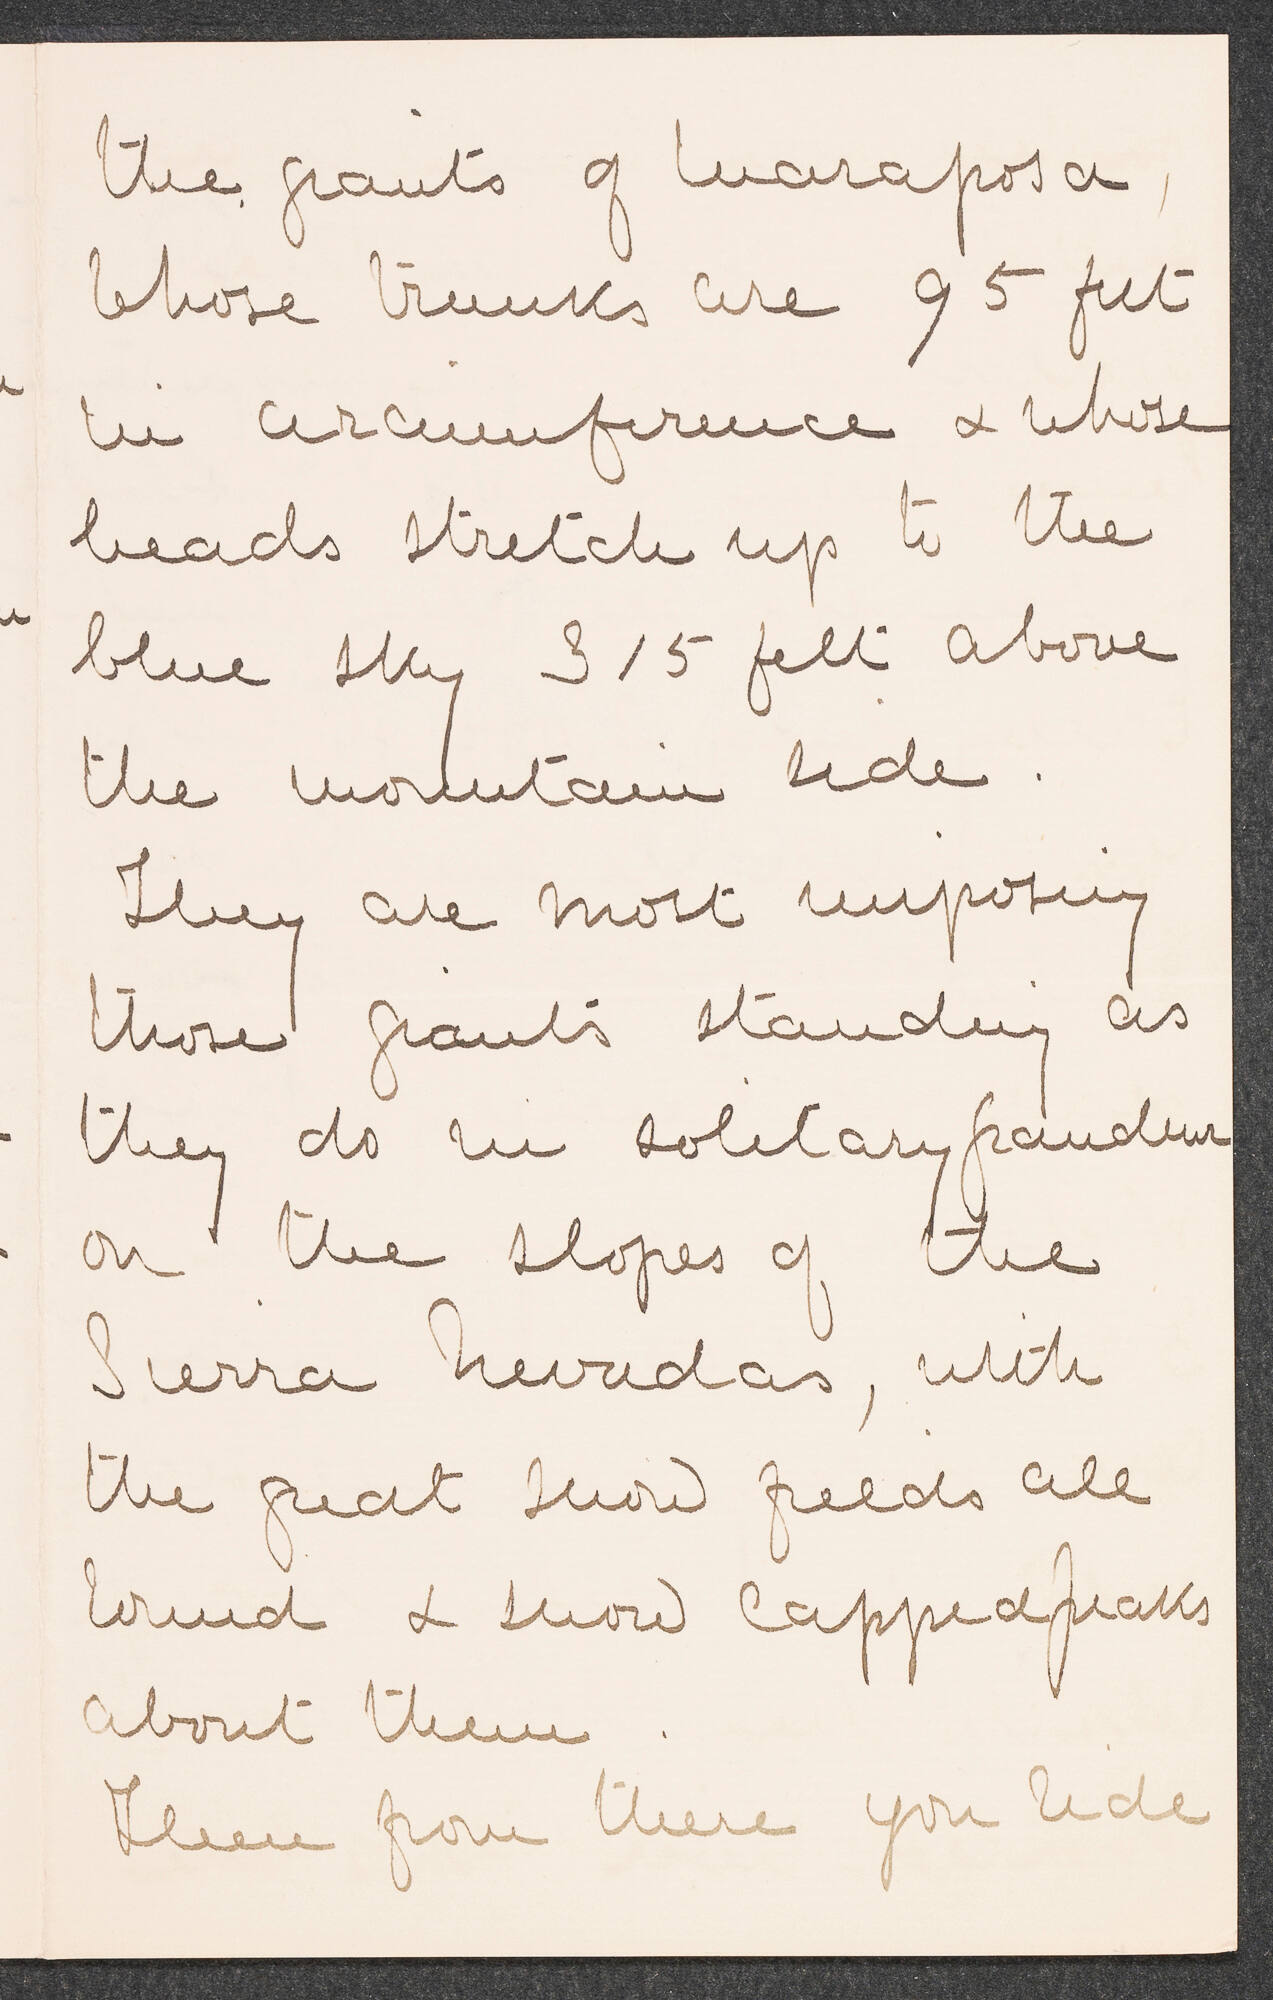 the giants of Maraposa,
whose trunks are 95 feet
in circumference & whose
heads stretch up to the
blue sky 315 feet above
the mountain side.
They are most imposing
those giants standing as
they do in solitary grandeur
on the slopes of the
Sierra Nevadas, with
the great snow fields all
round & snow capped peaks
about them.
Then from there you ride